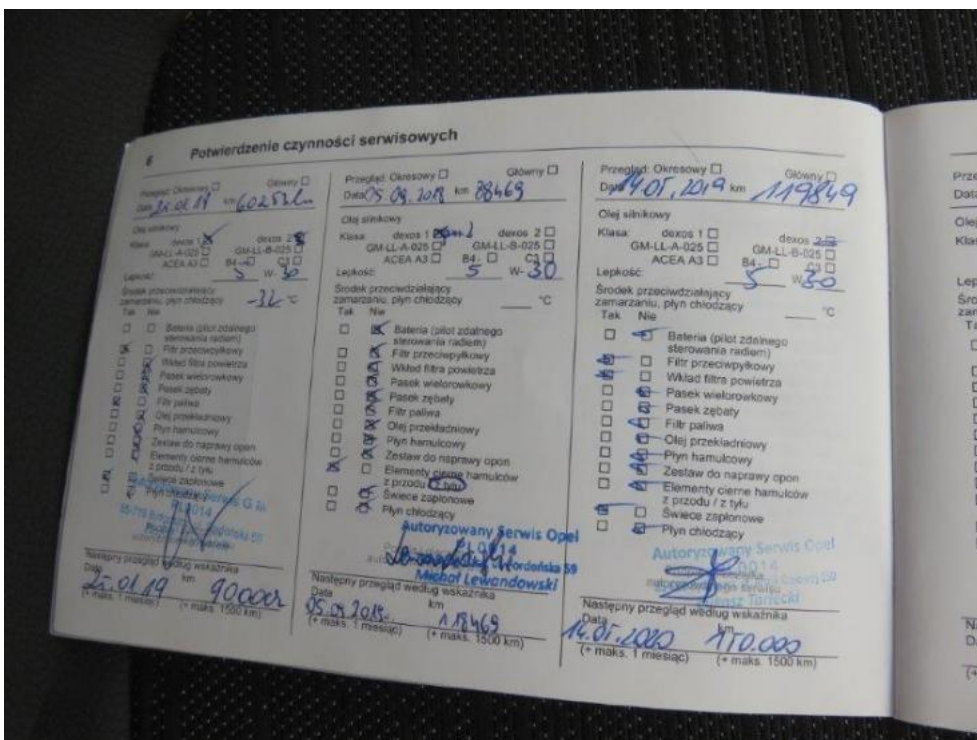 6 Potwierdzenie czynności serwisowych
Przegląd: Okresowy Główny
Data km 60253
Olej silnikowy
Klasa: dexos 1 dexos 2
GM-LL-A-025 GM-LL-B-025
ACEA A3 B4 - C3
Lepkość: 5 W- 30
Środek przeciwdziałający
zamarzaniu, płyn chłodzący -32 °C
Tak Nie
Bateria (pilot zdalnego
sterowania radiem)
Filtr przeciwpyłkowy
Wkład filtra powietrza
Pasek wielorowkowy
Pasek zębaty
Filtr paliwa
Olej przekładniowy
Płyn hamulcowy
Zestaw do naprawy opon
Elementy cierne hamulców
z przodu / z tyłu
Świece zapłonowe
Płyn chłodzący
Następny przegląd według wskaźnika
Data km
01 19 90000
(+ maks. 1 miesiąc) (+ maks. 1500 km)
Przegląd: Okresowy Główny
Data 05.09.2018 km 88469
Olej silnikowy
Klasa: dexos 1 dexos 2
GM-LL-A-025 GM-LL-B-025
ACEA A3 B4 - C3
Lepkość: 5 W- 30
Środek przeciwdziałający
zamarzaniu, płyn chłodzący °C
Tak Nie
Bateria (pilot zdalnego
sterowania radiem)
Filtr przeciwpyłkowy
Wkład filtra powietrza
Pasek wielorowkowy
Pasek zębaty
Filtr paliwa
Olej przekładniowy
Płyn hamulcowy
Zestaw do naprawy opon
Elementy cierne hamulców
z przodu / z tyłu
Świece zapłonowe
Płyn chłodzący
Autoryzowany Serwis Opel
PL0014
Fordońska 59
Michał Lewandowski
Następny przegląd według wskaźnika
Data km
05.09.2019 118469
(+ maks. 1 miesiąc) (+ maks. 1500 km)
Przegląd: Okresowy Główny
Data 14.05.2019 km 119849
Olej silnikowy
Klasa: dexos 1 dexos 2
GM-LL-A-025 GM-LL-B-025
ACEA A3 B4 - C3
Lepkość: 5 W- 30
Środek przeciwdziałający
zamarzaniu, płyn chłodzący °C
Tak Nie
Bateria (pilot zdalnego
sterowania radiem)
Filtr przeciwpyłkowy
Wkład filtra powietrza
Pasek wielorowkowy
Pasek zębaty
Filtr paliwa
Olej przekładniowy
Płyn hamulcowy
Zestaw do naprawy opon
Elementy cierne hamulców
z przodu / z tyłu
Świece zapłonowe
Płyn chłodzący
Autoryzowany Serwis Opel
Następny przegląd według wskaźnika
Data km
14.05.2020 150.000
(+ maks. 1 miesiąc) (+ maks. 1500 km)